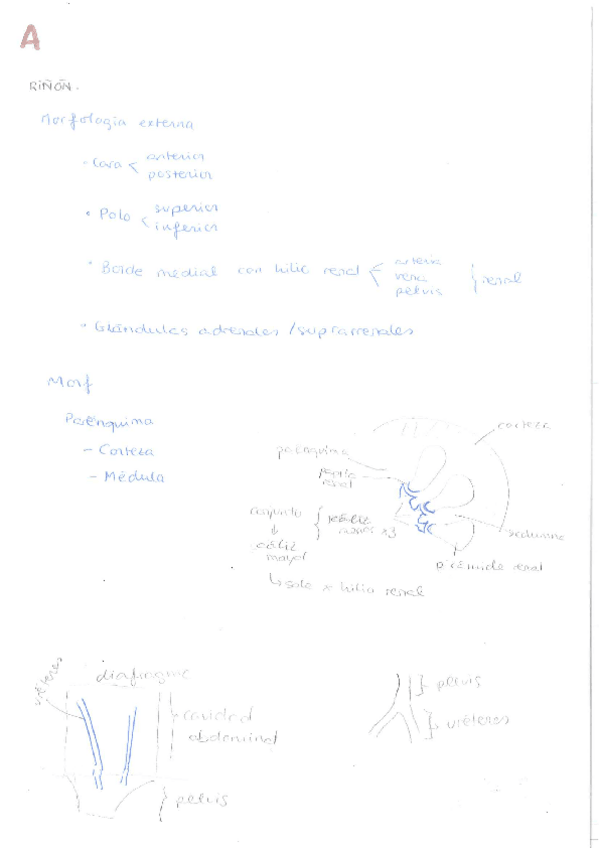 A
RIÑÓN.
Morfología externa
- Cara < anterior
posterior
• Polo < superior
inferior
• Borde medial con hilio renal < arteria
vena
pelvis } renal
• Glándulas adrenales / suprarrenales
Morf
Parénquima
- Corteza
- Médula
corteza
parénquima
papila
renal
conjunto
x3
↓
cáliz
mayor
pirámide renal
↳ sale x hilio renal
uréteres
diafragma
cavidad
abdominal
pelvis
pelvis
uréteres